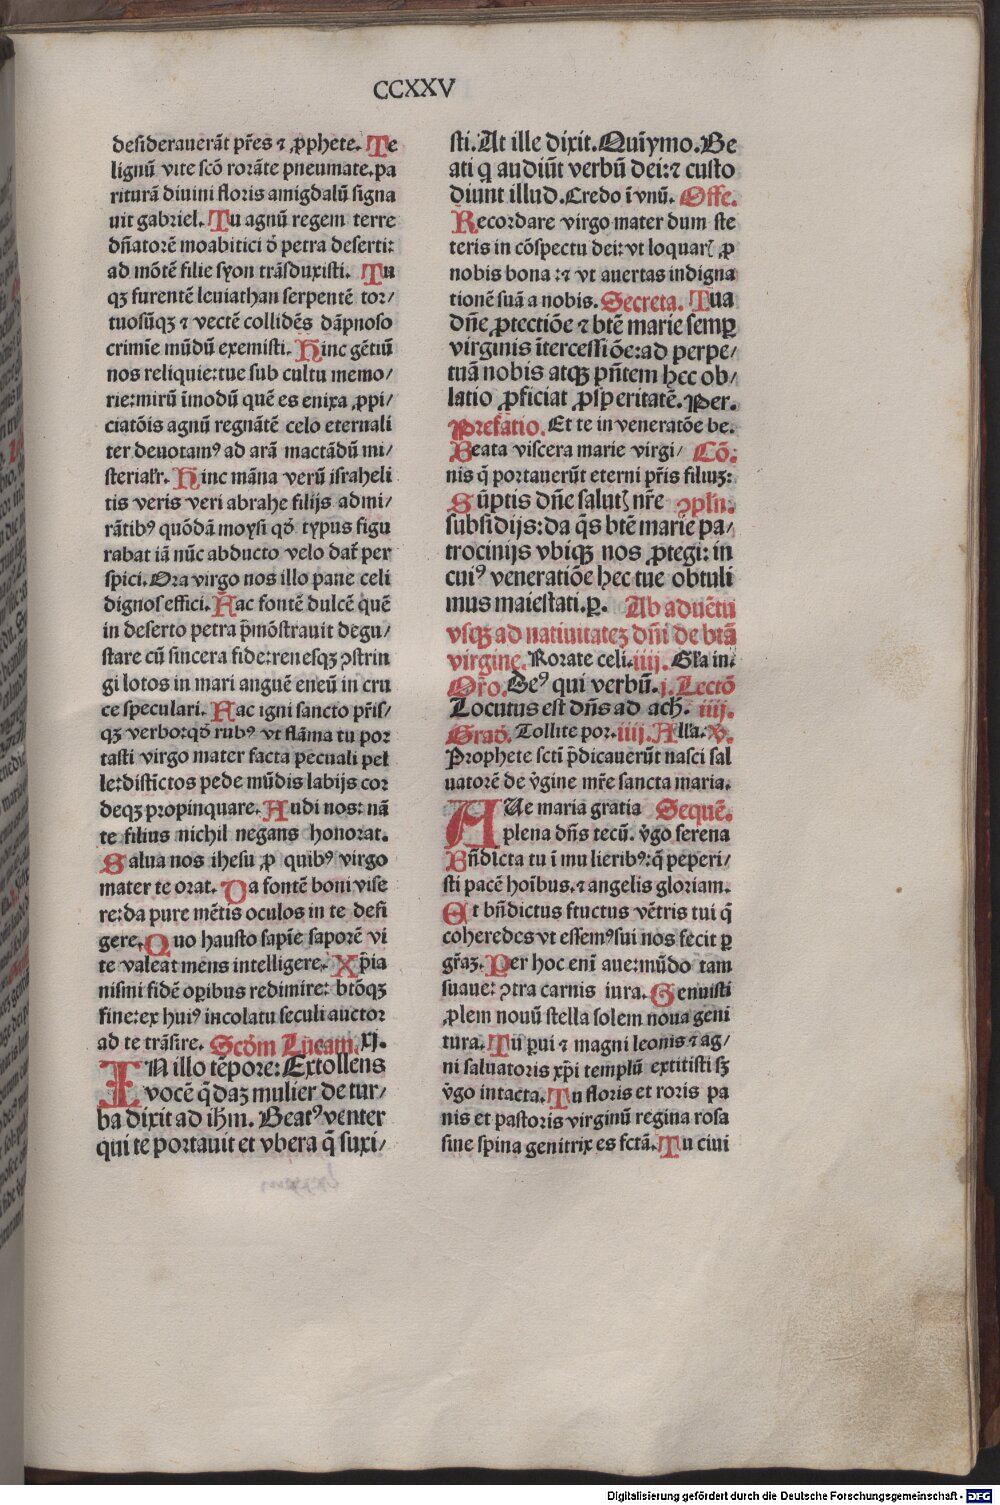 CCXXV
desiderauerāt pr̄es ⁊ ꝓphete. Te
lignū vite scō rorāte pneumate. pa
riturā diuini floris amigdalū signa
uit gabriel. Tu agnū regem terre
dn̄atorē moabitici ō petra deserti:
ad mōtē filie syon trāsduxisti. Tu
qꝫ furentē leuiathan serpentē tor/
tuosūqꝫ ⁊ vectē collidēs dāpnoso
crimīe mūdū exemisti. Hinc gētiū
nos reliquie: tue sub cultu memo/
rie: mirū īmodū quē es enixa ꝓpi/
ciatōis agnū regnātē celo eternali
ter deuotamꝰ ad arā mactādū mi/
sterialr̄. Hinc māna verū israheli
tis veris veri abrahe filijs admi/
rātibꝰ quōdā moysi qō typus figu
rabat iā nūc abducto velo dat̄ per
spici. Ora virgo nos illo pane celi
dignos effici. Hac fontē dulcē quē
in deserto petra p̄mōstrauit degu/
stare cū sincera fide: renesqꝫ ꝯstrin
gi lotos in mari anguē eneū in cru
ce speculari. Hac igni sancto pr̄is/
qꝫ verbo: qō rubꝰ vt flāma tu por
tasti virgo mater facta pecuali pel
le: distīctos pede mūdis labijs cor
deqꝫ propinquare. Audi nos: nā
te filius nichil negans honorat.
Salua nos ihesu ꝓ quibꝰ virgo
mater te orat. Da fontē boni vise
re: da pure mētis oculos in te defi
gere. Quo hausto sapīe saporē vi
te valeat mens intelligere. Xp̄ia
nismi fidē oꝑibus redimire: btōqꝫ
fine: ex huiꝰ incolatu seculi auctor
ad te trāsire. Scd̄m Lūcam. xj.
IN illo tēpore: Extollens
vocē q̄daꝫ mulier de tur/
ba dixit ad ih̄m. Beatꝰ venter
qui te portauit et vbera q̄ suxi/
sti. At ille dixit. Quīymo. Be
ati q audiūt verbū dei: ⁊ custo
diunt illud. Credo ī vnū. Offe.
Recordare virgo mater dum ste
teris in cōspectu dei: vt loquarꝭ ꝓ
nobis bona: ⁊ vt auertas indigna
tionē suā a nobis. Secreta. Tua
dn̄e ꝓtectiōe ⁊ btē marie semꝑ
virginis ītercessiōe: ad perpe/
tuā nobis atqꝫ pn̄tem hec ob/
latio ꝓficiat ꝓsperitatē. Per.
Prefatio. Et te in veneratōe be.
Beata viscera marie virgi/ Cō.
nis q̄ portauerūt eterni pr̄is filiuꝫ:
Sūptis dn̄e salutꝭ nr̄e ꝯpln̄.
subsidijs: da q̄s btē marie pa/
trocinijs vbiqꝫ nos ꝓtegi: in
cuiꝰ veneratiōe hec tue obtuli
mus maiestati. ꝑ. Ab aduētu
vsqꝫ ad natiuitateꝫ dn̄i de btā
virgine. Rorate celi. iiij. Gl̄a in.
Or̄o. Deꝰ qui verbū. j. Lectō
Locutus est dn̄s ad ach. iiij.
Grad. Tollite por. iiij. All̄a. ꝟ.
Prophete scti p̄dicauerūt nasci sal
uatorē de v̇gine mr̄e sancta maria.
AUe maria gratia Sequē.
plena dn̄s tecū. v̇go serena
Bn̄dicta tu ī mulieribꝰ: q̄ peperi/
sti pacē hoībus. ⁊ angelis gloriam.
Et bn̄dictus fructus vētris tui q̄
coheredes vt essemꝰ sui nos fecit ꝑ
gr̄aꝫ. Per hoc enī aue: mūdo tam
suaue: ꝯtra carnis iura. Genuisti
ꝓlem nouū stella solem noua geni
tura. Tū ꝑui ⁊ magni leonis ⁊ ag/
ni saluatoris xp̄i templū extitisti sꝫ
v̇go intacta. Tu floris et roris pa
nis et pastoris virginū regina rosa
sine spina genitrix es fctā. Tu ciui
Digitalisierung gefördert durch die Deutsche Forschungsgemeinschaft - DFG